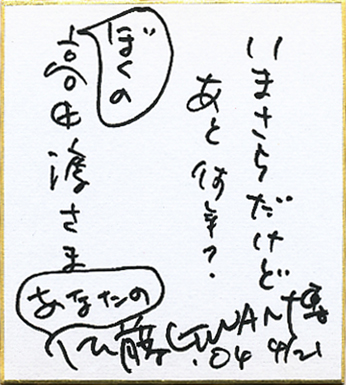 いまさらだけど
あと何年?
ぼくの
高田渡さま
あなたの
佐藤GWAN博
'04 4/21